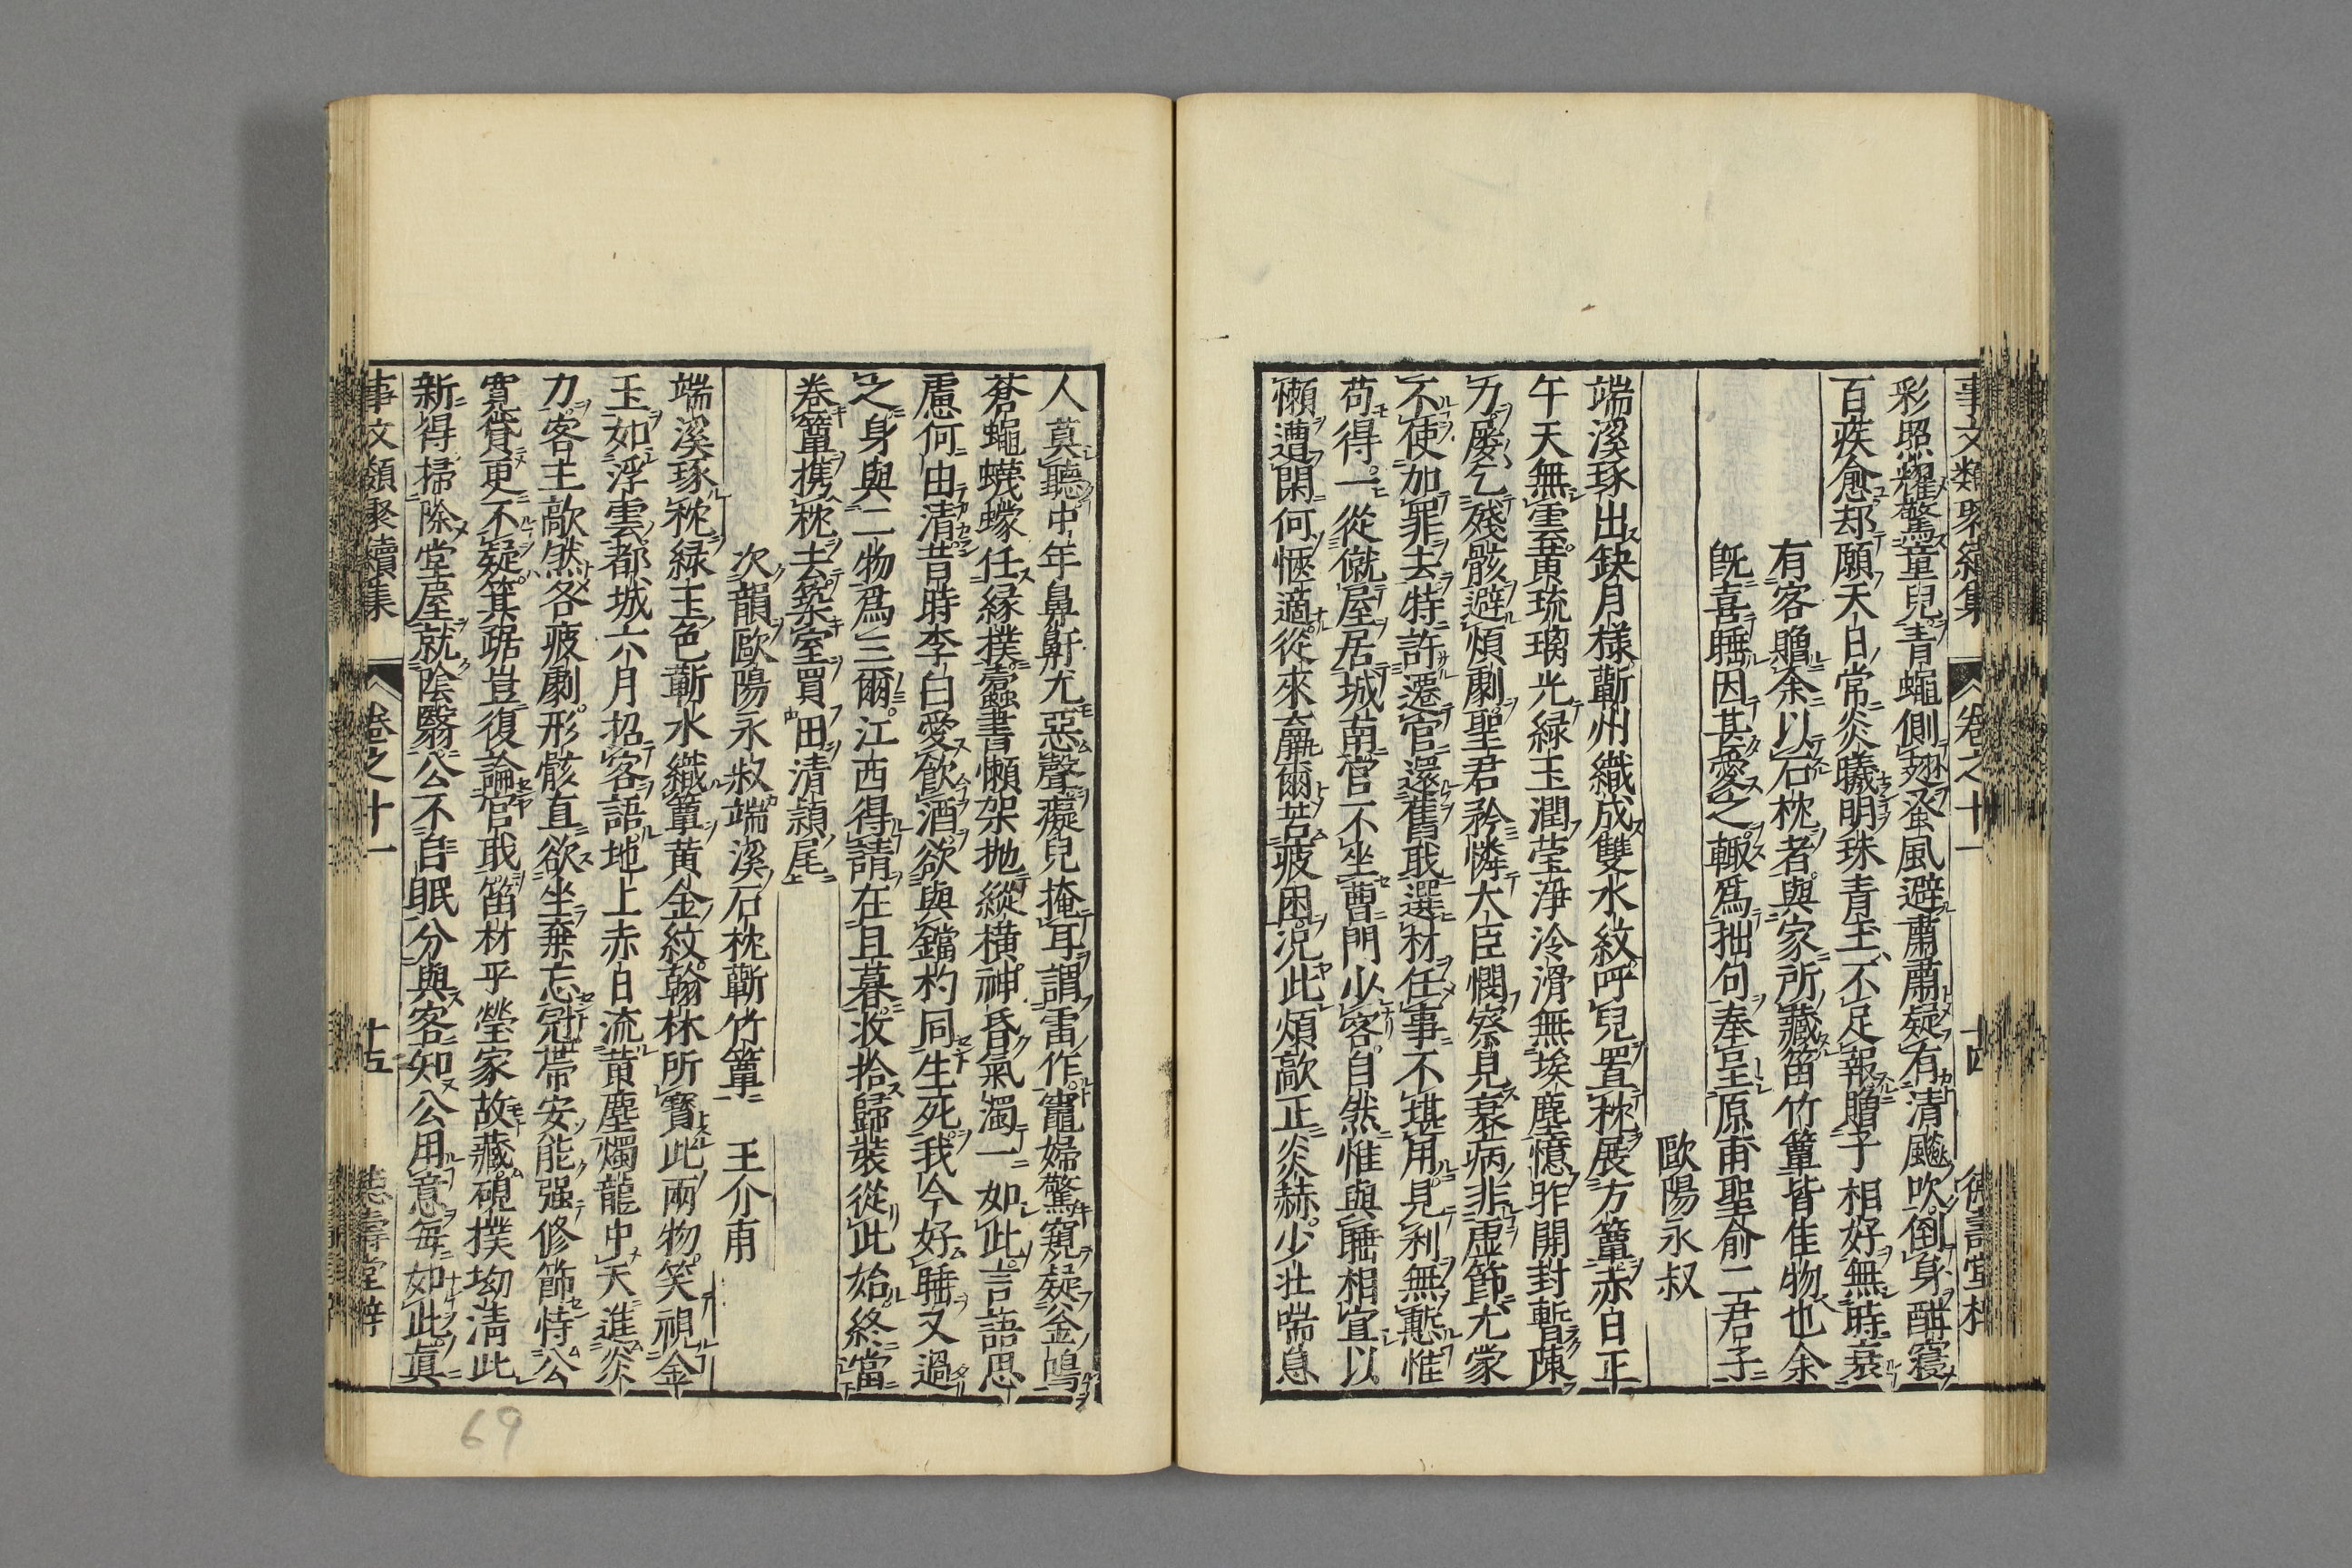 事文類聚續集 卷之十一 十四 德壽堂梓
彩照耀驚童兒青蠅側翅蚤風避肅肅疑有清飈吹倒身甜寢
百疾愈却願天日常炎曦明珠青玉不足報贈子相好無時衰
有客贈余以石枕者與家所藏笛竹簟皆佳物也余
旣喜睡因甚愛之輙爲拙句奉呈原甫聖俞二君子
歐陽永叔
端溪琢出缺月樣蘄州織成雙水紋呼兒置枕展方簟赤日正
午天無雲黃琉璃光緑玉潤瑩淨冷滑無埃塵憶昨開封暫陳
力屡乞殘骸避煩劇聖君矜憐大臣憫察見衰病非虛餙尤蒙
不使加罪去特許遷官還舊戢選材任事不堪用見利無慙惟
苟得一從僦屋居城南官不坐曹門少客自然惟與睡相宜以
懶遭閑何愜適從來羸爾苦疲困况此煩歊正炎赫少壯喘息
人莫聽中年鼻鼾尤惡聲癡兒掩耳謂雷作竈婦驚窺疑釜鳴
蒼蠅蠛蠓任緣撲蠹書懶架抛縱橫神昏氣濁一如此言語思
慮何由清昔時李白愛飲酒欲與鐺杓同生死我今好睡又過
之身與二物爲三爾江西得請在旦暮收拾歸裝從此始終當
卷簟携枕去築室買田清潁尾
次韻歐陽永叔端溪石枕蘄竹簟 王介甫
端溪琢枕緑玉色蘄水織簟黃金紋翰林所寶此兩物笑視金
玉如浮雲都城六月招客語地上赤日流黃塵燭龍中天進炎
力客主歊然各疲劇形骸直欲坐棄忘冠帶安能强修飾恃公
寬貸更不疑箕踞豈復論官戢笛材乎瑩家故藏硯撲坳淸此
新得掃除堂屋就陰翳公不自眠分與客知公用意每如此眞
事文類聚續集 卷之十一 十五 德壽堂梓
69